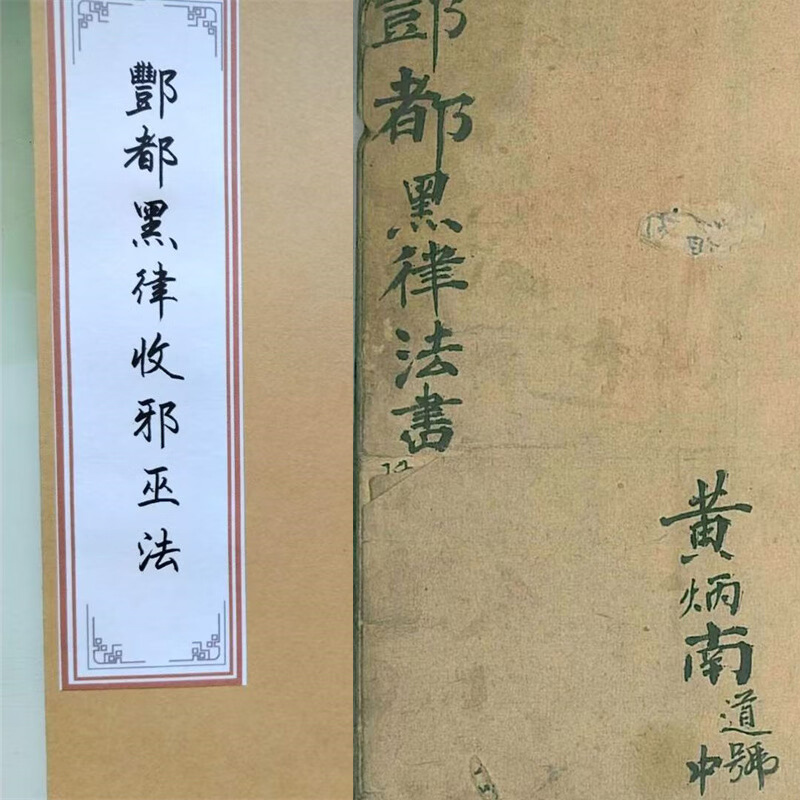 酆都黑律收邪巫法
酆都黑律法書
12
黄炳南
道號
中